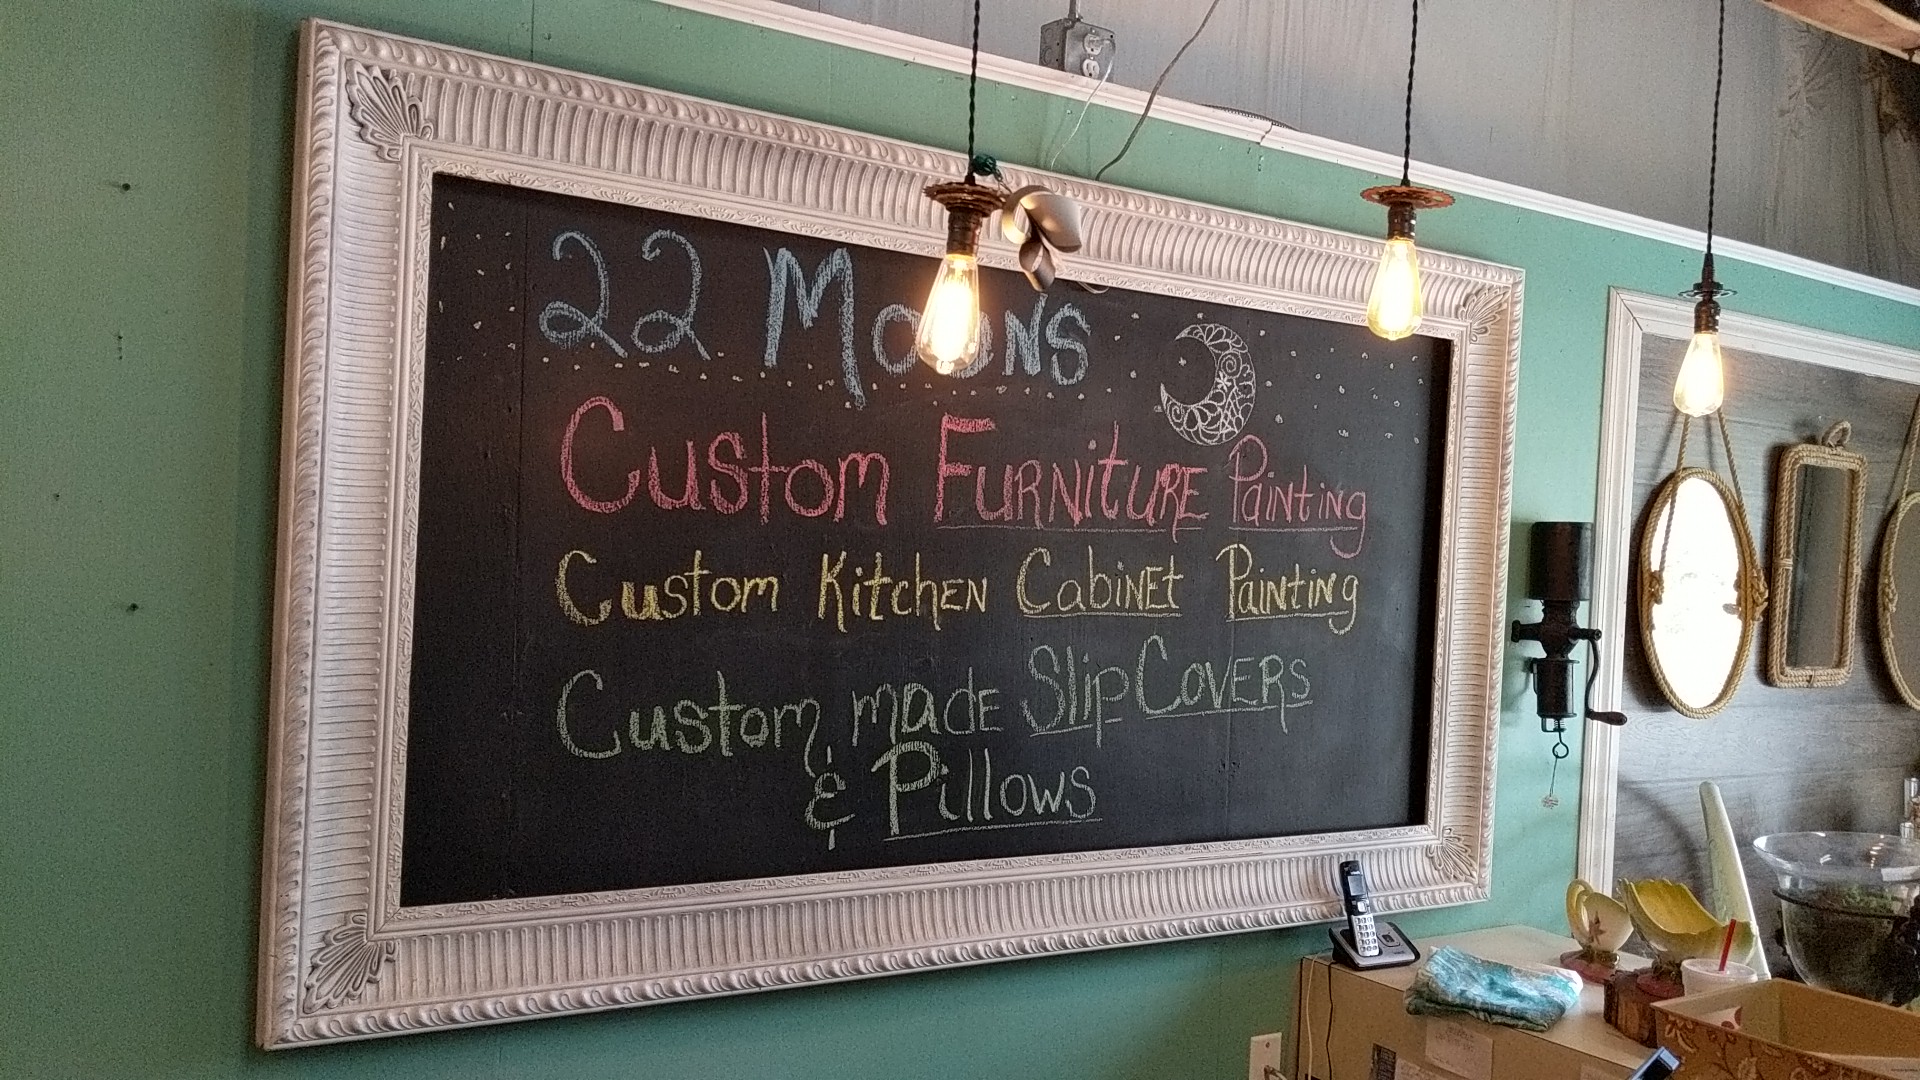 22 Moons
Custom Furniture Painting
Custom Kitchen Cabinet Painting
Custom made SlipCovers
& Pillows